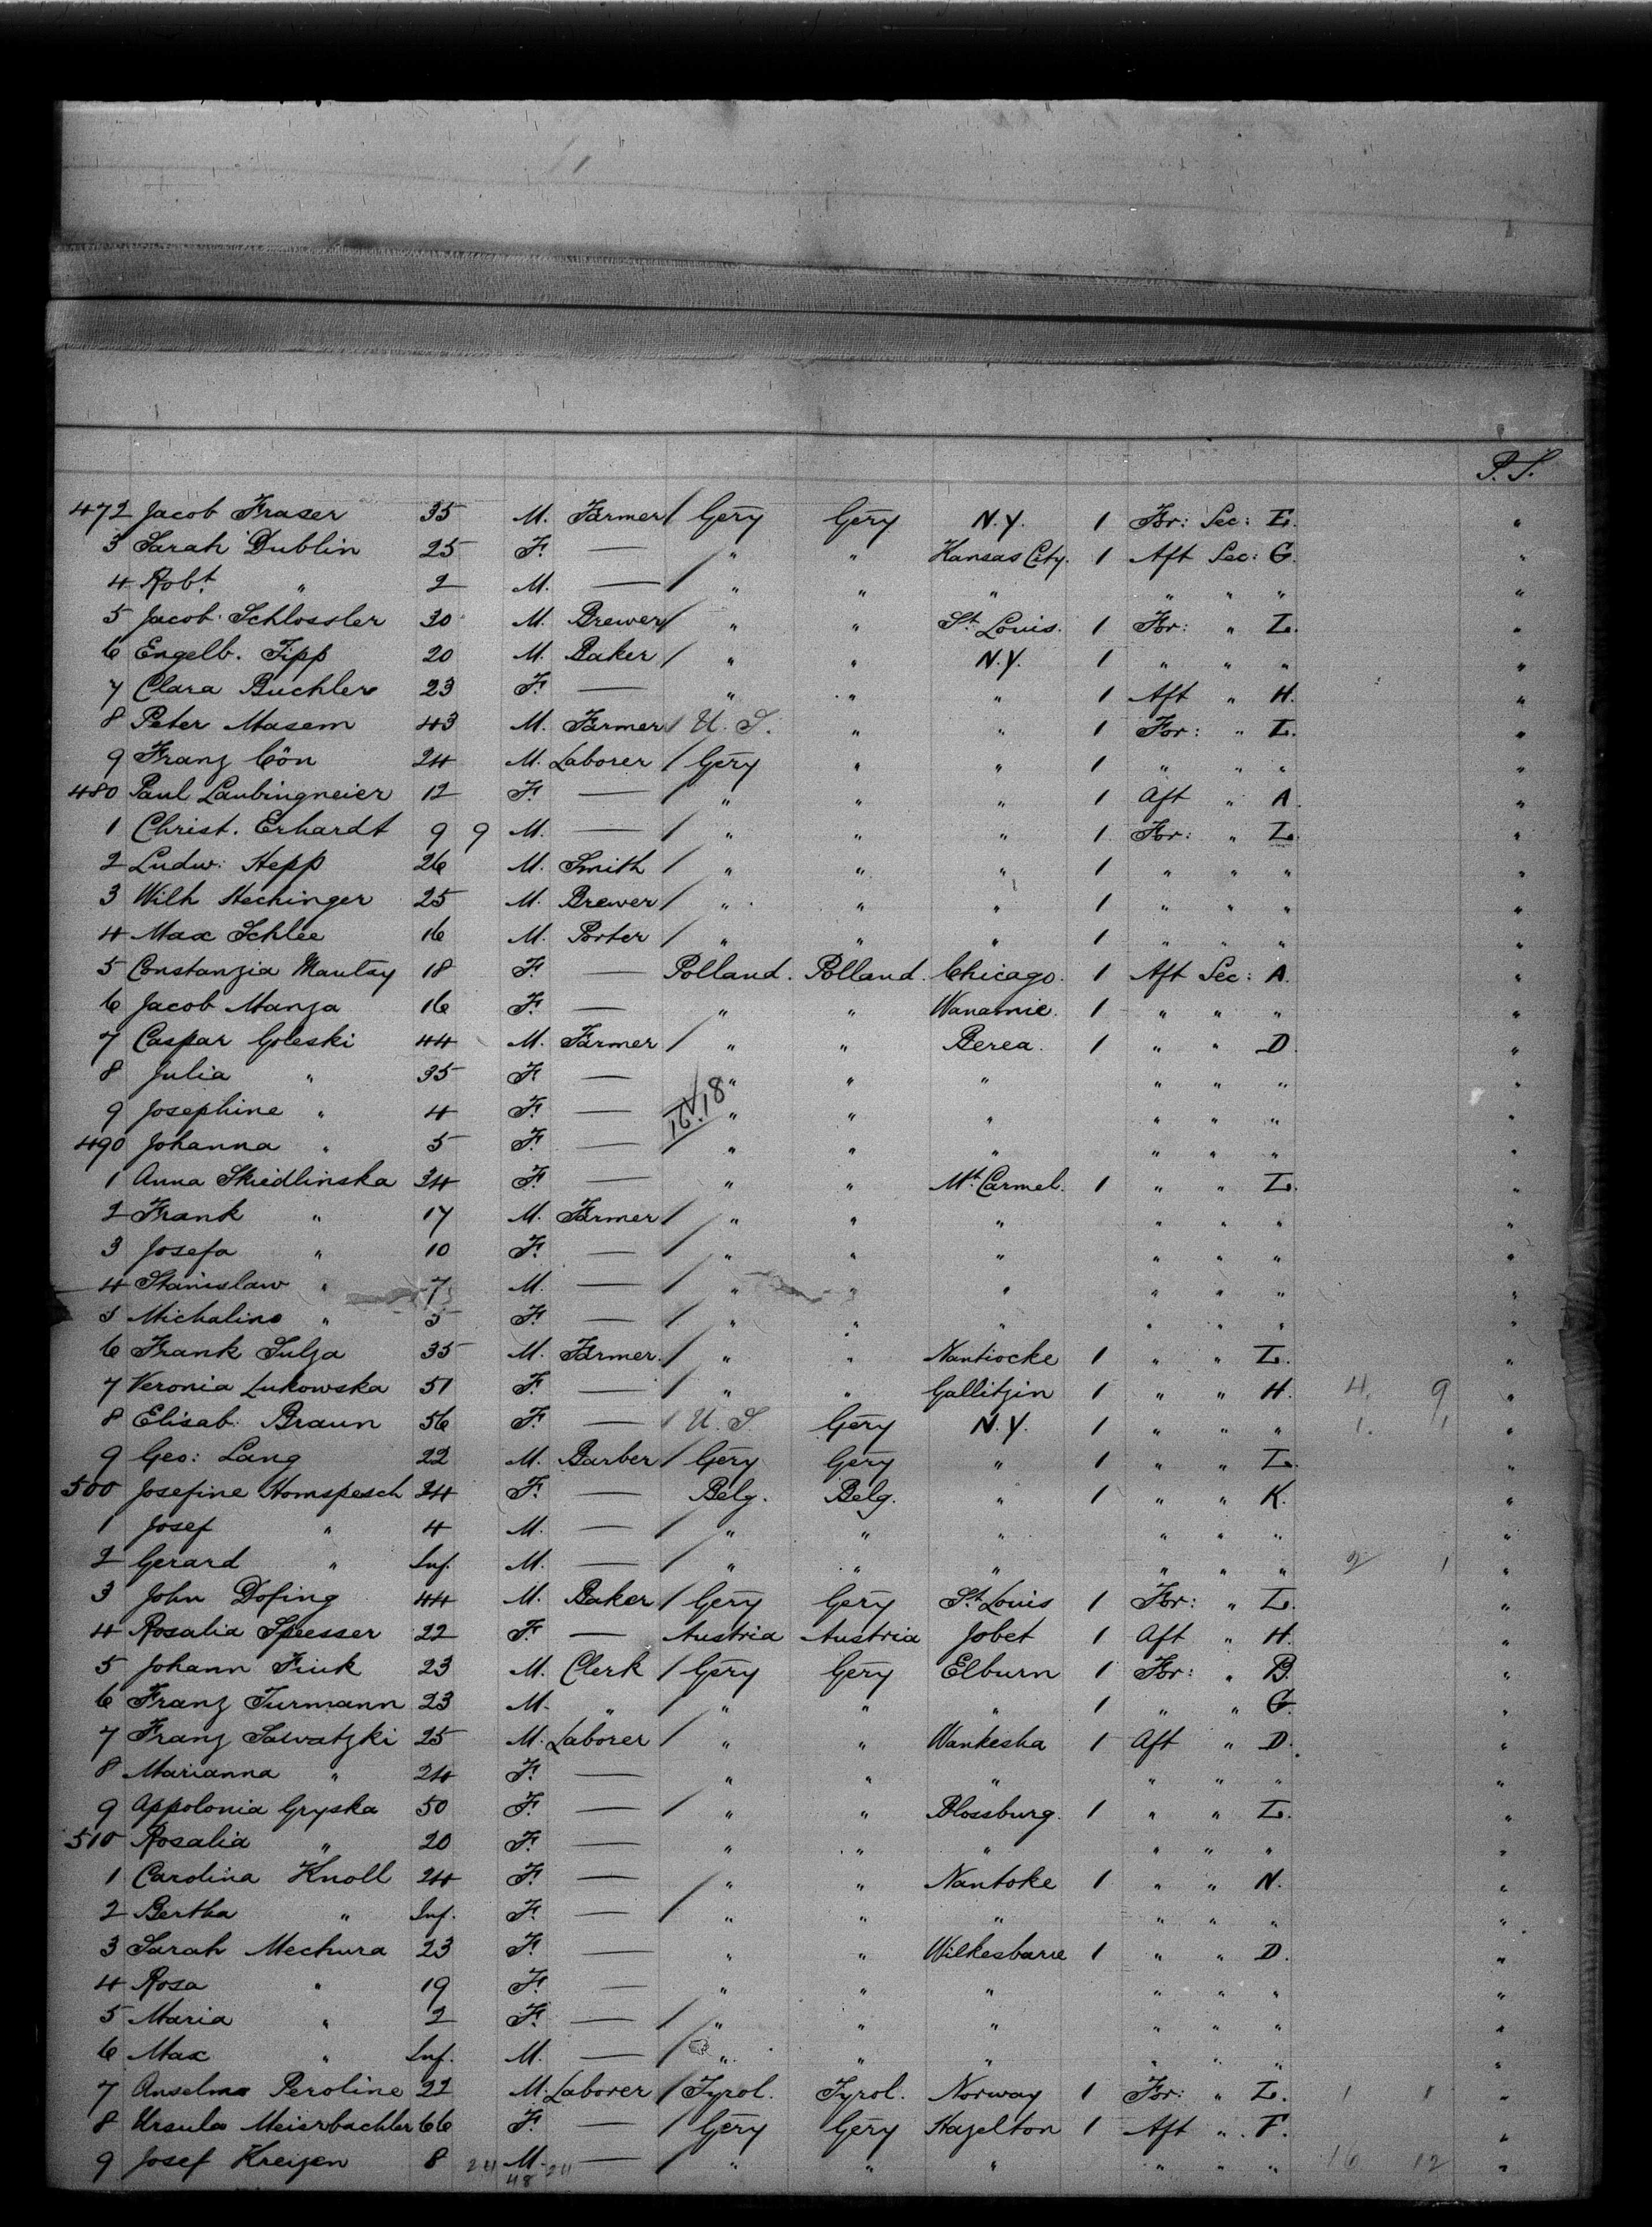 P.S.
472 Jacob Fraser 35 M. Farmer / Gery Gery N.Y. 1 For: Sec: E. "
3 Sarah Dublin 25 F. — " " Kansas City. 1 Aft Sec: G. "
4 Robt. " 2 M. — / " " " " " " "
5 Jacob Schlossler 30 M. Brewer / " " St. Louis. 1 For: " L. "
6 Engelb. Tipp 20 M. Baker / " " N.Y. 1 " " " "
7 Clara Buchler 23 F. — " " " 1 Aft " H. "
8 Peter Masem 43 M. Farmer / U.S. " " 1 For: " L. "
9 Franz Cön 24 M. Laborer / Gery " " 1 " " " "
480 Paul Laubingneier 12 F. — / " " " 1 Aft " A. "
1 Christ. Erhardt 9 9 M. — / " " " 1 For: " L. "
2 Ludw: Hepp 26 M. Smith / " " " 1 " " " "
3 Wilh Hechinger 25 M. Brewer / " " " 1 " " " "
4 Max Schlee 16 M. Porter / " " " 1 " " " "
5 Constanzia Mautay 18 F. — Polland. Polland. Chicago. 1 Aft Sec: A. "
6 Jacob Manza 16 F. — " " Wanamie. 1 " " " "
7 Caspar Goleski 44 M. Farmer / " " Berea. 1 " " D. "
8 Julia " 35 F. — " " " " " " "
9 Josephine " 4 F. — 16/V.18 " " " " " " "
490 Johanna " 5 F. — / " " " " " " "
1 Anna Skiedlinska 34 F. — " " Mt. Carmel. 1 " " L. "
2 Frank " 17 M. Farmer / " " " " " " "
3 Josefa " 10 F. — / " " " " " " "
4 Stanislaw " 7 M. — / " " " " " " "
5 Michalina " 5 F. — / " " " " " " "
6 Frank Sulza 35 M. Farmer. / " " Nantiocke 1 " " L. "
7 Veronia Lukowska 51 F. — / " " Gallitzin 1 " " H. 4. 9 "
8 Elisab. Braun 56 F. — / U.S. Gery N.Y. 1 " " " 1. 1 "
9 Geo: Lang 22 M. Barber / Gery Gery " 1 " " L. "
500 Josefine Homspesch 24 F. — Belg. Belg. " 1 " " K. "
1 Josef " 4 M. — / " " " " " " "
2 Gerard " Inf. M. — / " " " " " " 2 1 "
3 John Dofing 44 M. Baker / Gery Gery St. Louis 1 For: " L. "
4 Rosalia Speesser 22 F. — Austria Austria Jobet 1 Aft " H. "
5 Johann Fink 23 M. Clerk / Gery Gery Elburn 1 For: " B. "
6 Franz Turmann 23 M. " / " " " 1 " " G. "
7 Franz Sawatzki 25 M. Laborer / " " Wankesha 1 Aft " D. "
8 Marianna " 24 F. — " " " " " " "
9 Appolonia Gryska 50 F. — / " " Blossburg. 1 " " L. "
510 Rosalia " 20 F. — " " " " " " "
1 Carolina Knoll 24 F. — " " Nantoke 1 " " N. "
2 Bertha " Inf. F. — / " " " " " " "
3 Sarah Mechura 23 F. — " " Wilkesbarre 1 " " D. "
4 Rosa " 19 F. — " " " " " " "
5 Maria " 2 F. — / " " " " " " "
6 Max " Inf. M. — / " " " " " " "
7 Anselmo Peroline 22 M. Laborer / Tyrol. Tyrol. Norway 1 For: " L. 1 1 "
8 Ursula Meierbachler 66 F. — / Gery Gery Hazelton 1 Aft " F. "
9 Josef Kreizen 8 24 M. 24 — / " " " " " " 16 12 "
48